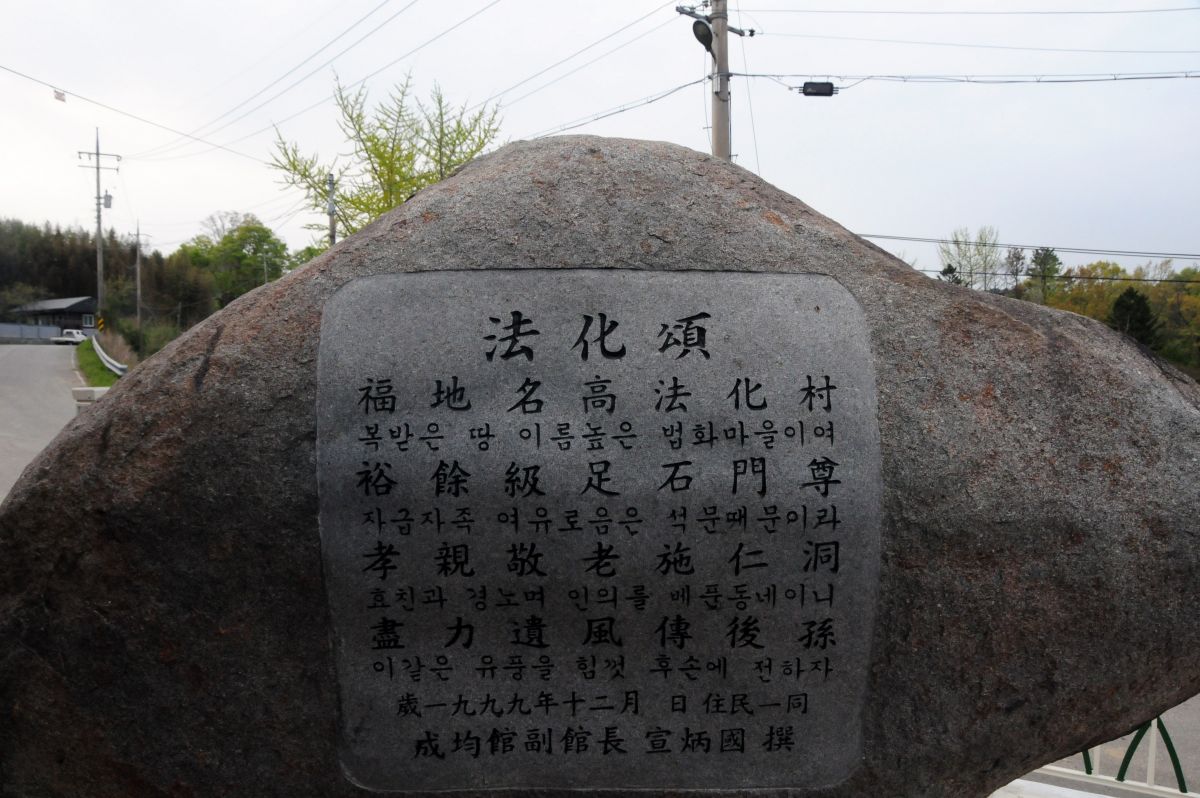 法化頌
福地名高法化村
복받은 땅 이름높은 법화마을이여
裕餘級足石門尊
자급자족 여유로음은 석문때문이라
孝親敬老施仁洞
효친과 경노며 인의를 베푼동네이니
盡力遺風傳後孫
이같은 유풍을 힘껏 후손에 전하자
歲一九九九年十二月 日 住民一同
成均館副館長 宣炳國 撰